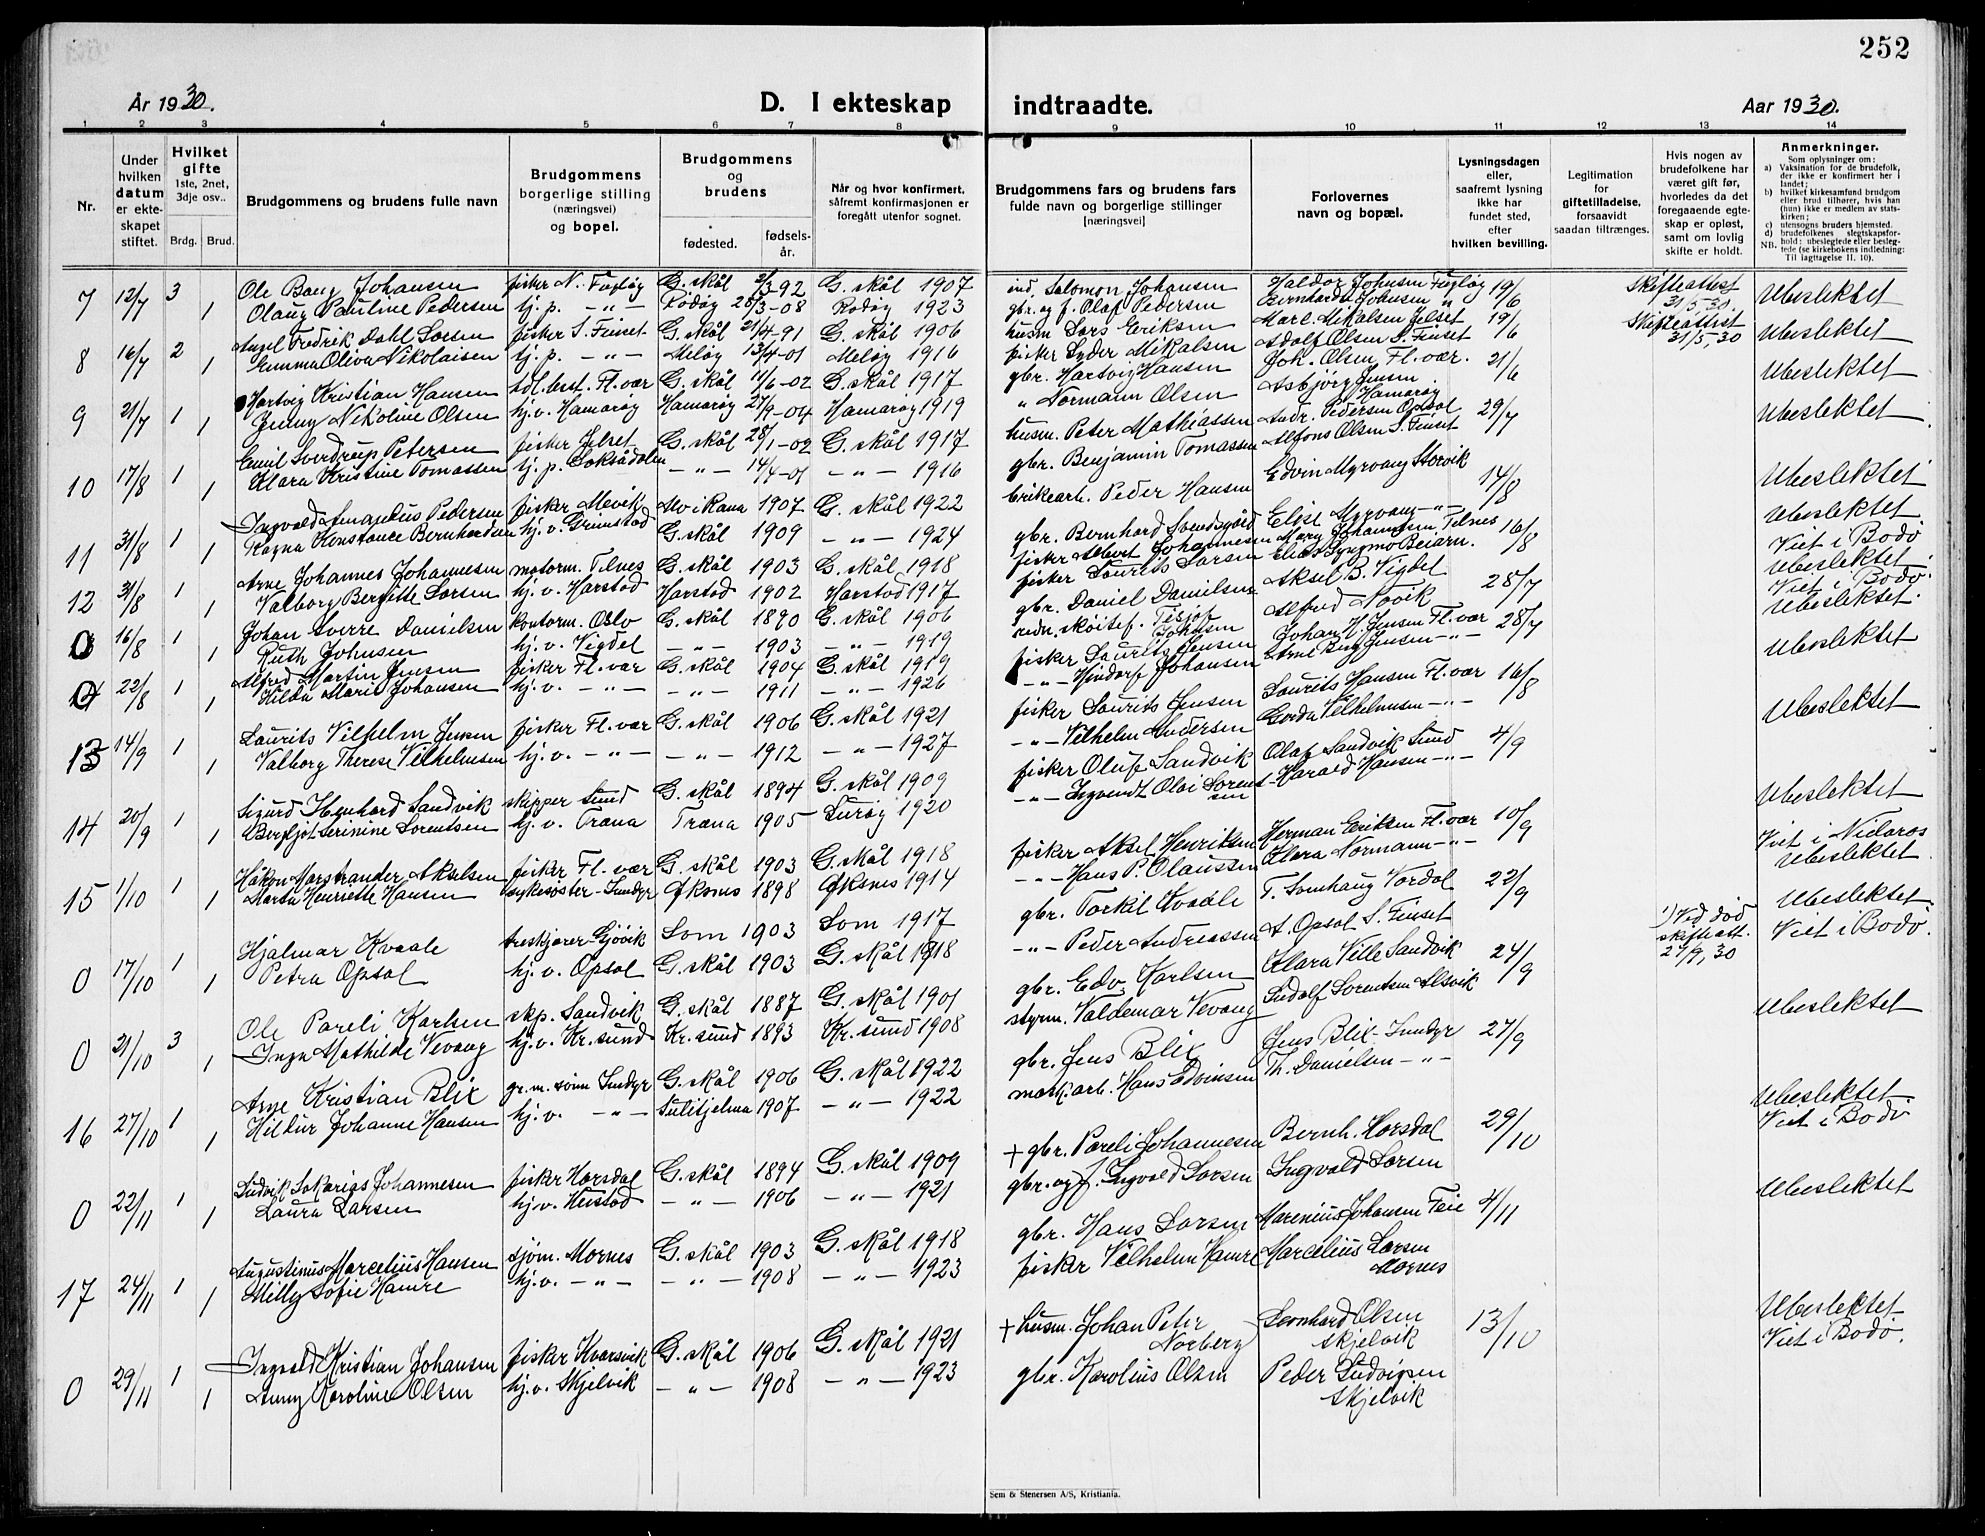 252
År 1930.
D. I ekteskap
indtraadte.
Aar 1930.
1 2 3 4 5 6 7 8 9 10 11 12 13 14
Nr.
Under hvilken datum er ekteskapet stiftet.
Hvilket gifte 1ste, 2net, 3dje osv..
Brdg. Brud.
Brudgommens og brudens fulle navn
Brudgommens borgerlige stilling (næringsvei) og bopel.
Brudgommens og brudens
fødested.
fødselsår.
Når og hvor konfirmert, såfremt konfirmasjonen er foregått utenfor sognet.
Brudgommens fars og brudens fars fulde navn og borgerlige stillinger [næringsvei]
Forlovernes navn og bopæl.
Lysningsdagen eller, saafremt lysning ikke har fundet sted, efter hvilken bevilling.
Legitimation for giftetilladelse, forsaavidt saadan tiltrænges.
Hvis nogen av brudefolkene har været gift før, hvorledes da det foregaaende egteskap er opløst, samt om lovlig skifte er holdt.
Anmerkninger.
Som oplysninger om:
a) Vaksination for de brudefolk, der ikke er konfirmert her i landet;
b) hvilket kirkesamfund brudgom eller brud tilhører, hvis han (hun) ikke er medlem av statskirken;
c) utensogns bruders hjemsted.
d) brudefolkenes slegtskapsforhold: ubeslegtede eller beslegtede (se kirkebokens indledning: Til iagttagelse II. 10).
NB.
7 12/7 3 Ole Bang Johansen fisker N. Fugløy G. skål 2/3-92 G. skål 1907 ind. Salomon Johansen Haldor Johnsen Fugløy 19/6 Skifteattest 31/5-30 Ubeslektet
1 Olaug Pauline Pedersen hj. p. -"- Rødøy 28/3-08 Rødøy 1923 gbr. og f. Olaf Pedersen Bernhardt Johnsen "
8 16/7 2 Fredrik Dahl fisker S. Finset G. skål 21/4-91 G. skål 1906 husm Lars Eriksen Marl. Mikalsen Jelset 19/6 Skifteattest 31/5, 30 Ubeslektet
1 Emma Oliva Nikolaisen hj. p. -"- Meløy 13/4-01 Meløy 1916 fisker Peder Mikalsen Adolf Olsen S. Finset
9 21/7 1 Hartvig Kristian Hansen Fl. vær G. skål 11/6-02 G. skål 1917 gbr. Hartvig Hansen Joh. Olsen Fl. vær. 21/6 Ubeslektet
1 Jenny Nikoline Olsen hj. v. Hamarøy Hamarøy 27/9-04 Hamarøy 1919 " Normann Olsen Asbjørg Jensen Hamarøy Ubeslektet
10 17/8 1 Emil Sverdrup Petersen fisker Jelset G. skål 28/1-02 G. skål 1917 husm. Peter Mathiassen Andr. Pedersen Opsal 29/7
1 Klara Kristine Tomassen hj. p. Soksådalen -"- 14/4-01 -"- 1916 gbr. Benjamin Tomassen Alfons Olsen S. Finset Ubeslektet
11 31/8 1 Ingvald Amandus Pedersen fisker Mevik Mo i Rana 1907 G. skål 1922 Peder Hansen Edvin Myrvang Storvik 14/8 Ubeslektet
1 Ragna Konstance Bernhardsen hj. v. Grimstad G. skål 1909 -"- 1924 gbr. Bernhard Svendsgård Elise Myrvang -"- Viet i Bodø
12 31/8 1 Arne Johannes Johannesen motorm. Tilnes G. skål 1903 G. skål 1918 fisker Albert Johannesen Mary Johannesen Tilnes 16/8 Ubeslektet
1 Valborg Bergitte Larsen hj. v. Harstad Harstad 1902 Harstad 1917 fisker Laurits Larsen Elias Beiarn. Viet i Bodø
0 16/8 1 Johan Sverre Danielsen kontorm. Oslo G. skål 1890 G. skål 1906 gbr. Daniel Danielsen Aksel B. Vigdel 28/7 Ubeslektet.
1 Ruth Johnsen hj. v. Vigdel -"- 1903 -"- 1919 Johnsen Alfred Novik
0 22/8 1 Alfred Martin Jensen fisker Fl. vær G. skål 1904 G. skål 1919 fisker Laurits Jensen Johan H. Jensen Fl. vær 28/7 Ubeslektet
1 Hilda Marie Johansen hj. v. -"- -"- 1911 -"- 1926 -"- Hjindorf Johansen Arne Jensen -"-
13 14/9 1 Laurits Vilhelm Jensen fisker Fl. vær G. skål 1906 G. skål 1921 fisker Laurits Jensen Laurits Hansen Fl. vær 16/8 Ubeslektet
1 Valborg Therese Vilhelmsen hj. v. -"- -"- 1912 -"- 1927 -"- Vilhelm Andersen Gerda Vilhelmsen -"-
14 20/9 1 Sigurd Sandvik skipper Sund G. skål 1894 G. skål 1909 fisker Oluf Sandvik Olaf Sandvik Sund 4/9 Ubeslektet
1 Bergljot Serinine Sorentsen hj. v. Træna Træna 1905 Lurøy 1920 -"- Ingvendt Olai Sorentsen Harald Hansen -"-
15 1/10 1 Håkon Marstrander Akselsen fisker Fl. vær G. skål 1903 G. skål 1918 fisker Aksel Henriksen Herman Eriksen Fl. vær 10/9 Viet i Nidaros
1 Marta Henriette Hansen sykesøster-Inndyr Øksnes 1898 Øksnes 1914 -"- Hans P. Olaussen Klara Normann -"- Ubeslektet.
0 17/10 1 Hjalmar Kvaale treskjærer-Gjøvik Lom 1903 Lom 1917 gbr. Torkil Kvaale T. Somhaug Vardal 22/9 Ubeslektet
1 Petra Opsal hj. v. Opsal G. skål 1903 G. skål 1918 -"- Peder Andreassen A. Opsal S. Finset 1) Ved død skifteatt. 27/9, 30 Viet i Bodø.
0 31/10 3 Ole Pareli Karlsen skp. Sandvik G. skål 1887 G. skål 1901 gbr. Edv. Karlsen Klara Ville Sandvik 24/9 Ubeslektet
1 Inga Mathilde Vevang hj. v. Kr. sund Kr. sund 1893 Kr. sund 1908 styrm. Valdemar Vevang Ludolf Sorentsen Alsvik
16 27/10 1 Arne Kristian Blix gr. m. sønn Inndyr G. skål 1906 G. skål 1922 gbr. Jens Blix Jens Blix-Inndyr 27/9 Ubeslektet
1 Hildur Johanne Hansen hj. v. -"- Sulitjelma 1907 -"- 1922 mask. arb. Hans Edvinsen Th. Danielsen -"- Viet i Bodø
0 22/11 1 Ludvik Sakarias Johannesen fisker Horsdal G. skål 1894 G. skål 1909 + gbr. Pareli Johannesen Bernh. Horsdal 29/10
1 Laura Larsen hj. v. -"- 1906 -"- 1921 gbr. og f. Ingvald Larsen Ingvald Larsen Ubeslektet
17 24/11 1 Augustinus Marcelius Hansen sjøm. Mornes G. skål 1903 G. skål 1918 gbr. Hans Larsen Marenius Johansen Feie 4/11
1 Milly Sofie Hamre hj. v. -"- -"- 1908 -"- 1923 fisker Vilhelm Hamre Marcelius Larsen Mornes
0 29/11 1 Ingvald Kristian Johansen fisker Kvarsvik G. skål 1906 G. skål 1921 + husm. Johan Peter Norberg Leonhard Olsen Skjelvik 13/10 Ubeslektet Viet i Bodø.
1 Jenny Karoline Olsen hj. v. Skjelvik -"- 1908 -"- 1923 gbr. Karolius Olsen Peder Ludvigsen Skjelvik
Sem & Stenersen A/S, Kristiania.